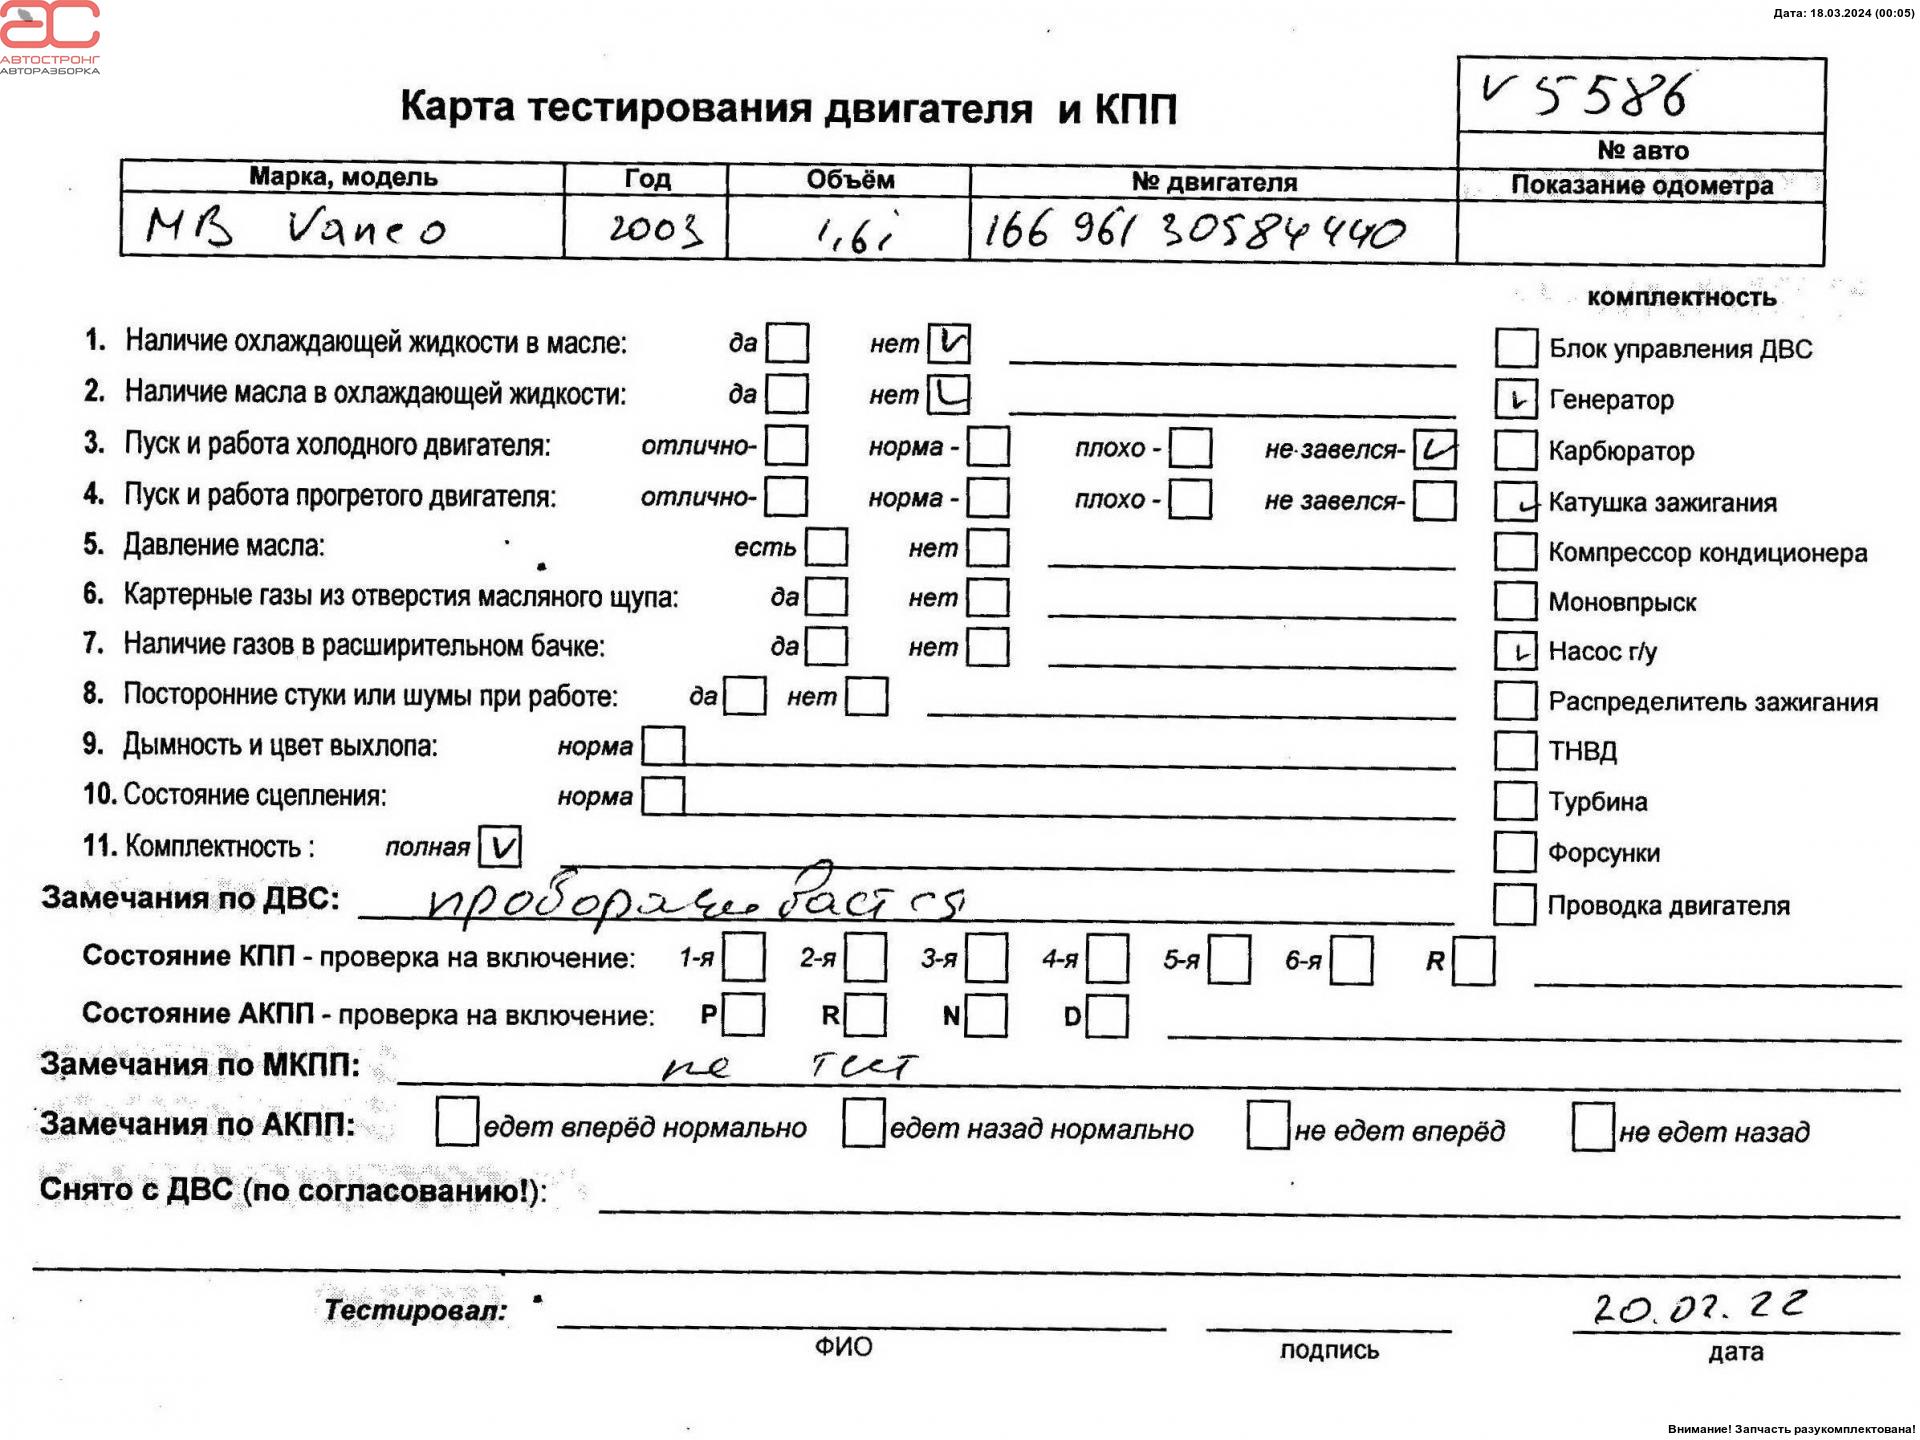 АС
АВТОСТРОНГ
АВТОРАЗБОРКА
Дата: 18.03.2024 (00:05)
Карта тестирования двигателя и КПП
V5586
№ авто
Марка, модель Год Объём № двигателя Показание одометра
MB Vaneo 2003 1,6i 166 961 30584440
комплектность
1. Наличие охлаждающей жидкости в масле: да нет Блок управления ДВС
2. Наличие масла в охлаждающей жидкости: да нет Генератор
3. Пуск и работа холодного двигателя: отлично- норма - плохо - не завелся- Карбюратор
4. Пуск и работа прогретого двигателя: отлично- норма - плохо - не завелся- Катушка зажигания
5. Давление масла: есть нет Компрессор кондиционера
6. Картерные газы из отверстия масляного щупа: да нет Моновпрыск
7. Наличие газов в расширительном бачке: да нет Насос г/у
8. Посторонние стуки или шумы при работе: да нет Распределитель зажигания
9. Дымность и цвет выхлопа: норма ТНВД
10. Состояние сцепления: норма Турбина
11. Комплектность : полная Форсунки
Замечания по ДВС: Проводка двигателя
Состояние КПП - проверка на включение: 1-я 2-я 3-я 4-я 5-я 6-я R
Состояние АКПП - проверка на включение: P R N D
Замечания по МКПП: не тест
Замечания по АКПП: едет вперёд нормально едет назад нормально не едет вперёд не едет назад
Снято с ДВС (по согласованию!):
Тестировал: 
ФИО подпись дата
Внимание! Запчасть разукомплектована!